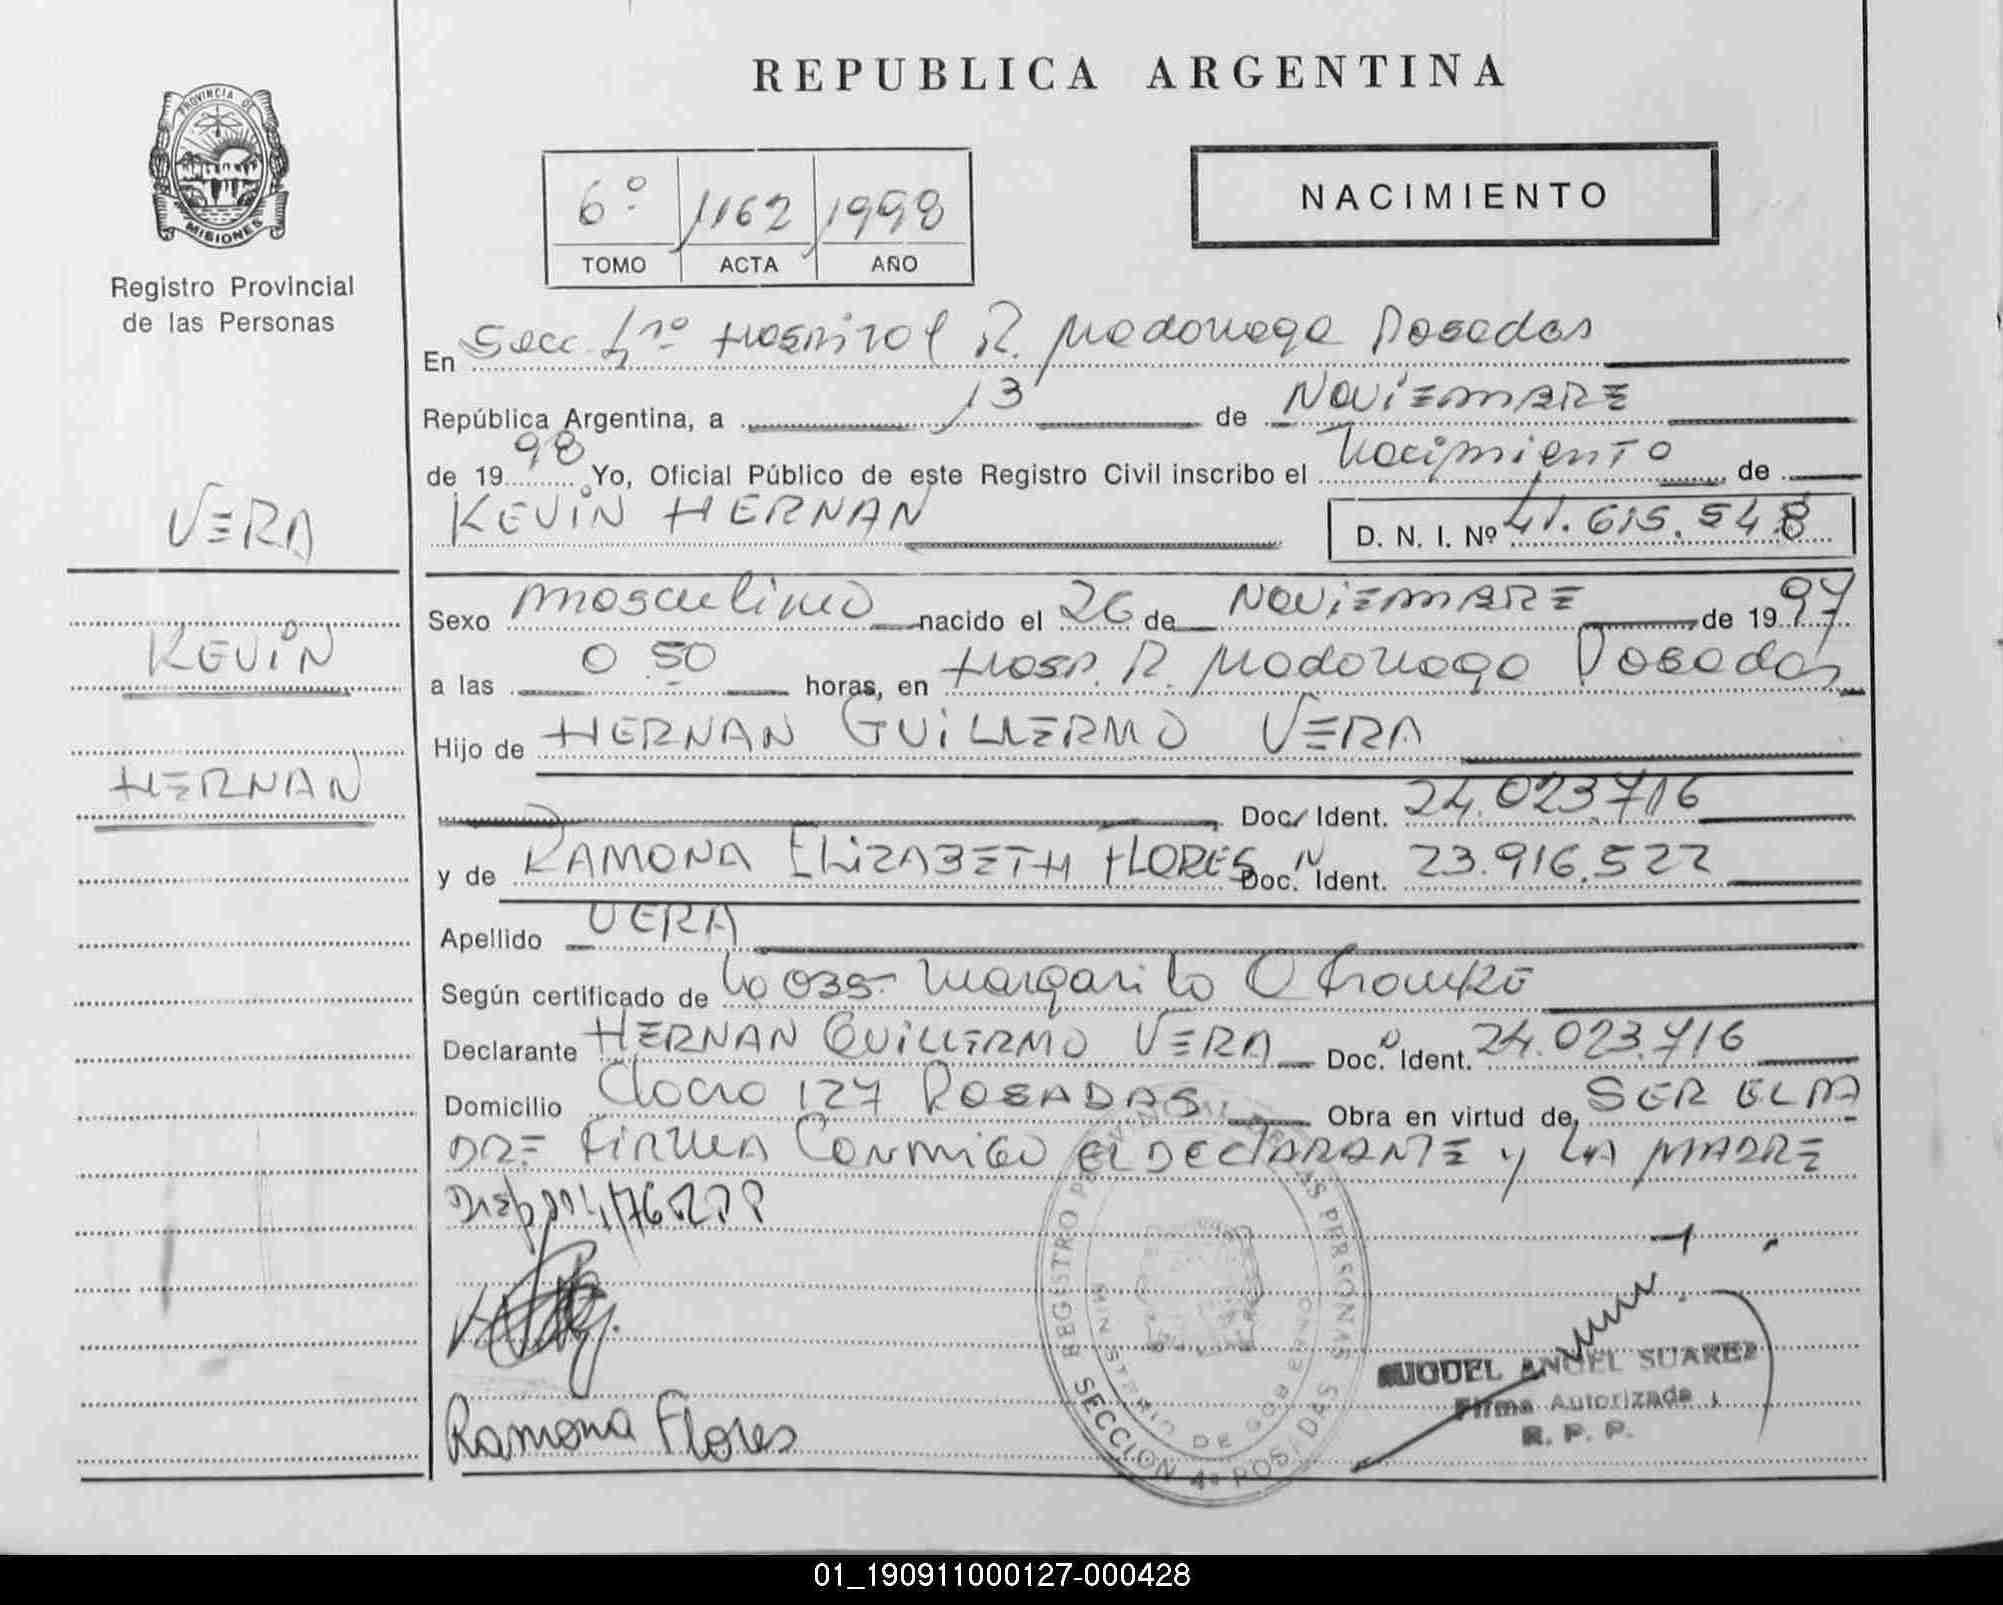 REPUBLICA ARGENTINA
PROVINCIA DE
MISIONES
Registro Provincial
de las Personas
6º 1162 1998
TOMO ACTA AÑO
NACIMIENTO
En Secc 4º Hospital R. Madariaga Posadas
República Argentina, a 13 de NOVIEMBRE
de 1998 Yo, Oficial Público de este Registro Civil inscribo el Nacimiento de
KEVIN HERNAN D. N. I. Nº 41.615.548
VERA
KEVIN
HERNAN
Sexo masculino nacido el 26 de NOVIEMBRE de 1997
a las 0 50 horas, en Hosp. R. Madariaga Posadas
Hijo de HERNAN GUILLERMO VERA
Doc. Ident. 24.023.716
y de RAMONA ELIZABETH FLORES Doc. Ident. 23.916.522
Apellido VERA
Según certificado de la Obst. Margarita O
Declarante HERNAN GUILLERMO VERA Doc. Ident. 24.023.716
Domicilio 127 POSADAS Obra en virtud de SER EL PA
DRE FIRMA CONMIGO EL DECLARANTE y LA MADRE
Disp
Ramona Flores
REGISTRO PROVINCIAL DE LAS PERSONAS
MINISTERIO DE GOBIERNO
SECCION 4ª POSADAS
MIGUEL ANGEL SUAREZ
Firma Autorizada
R. P. P.
01_190911000127-000428